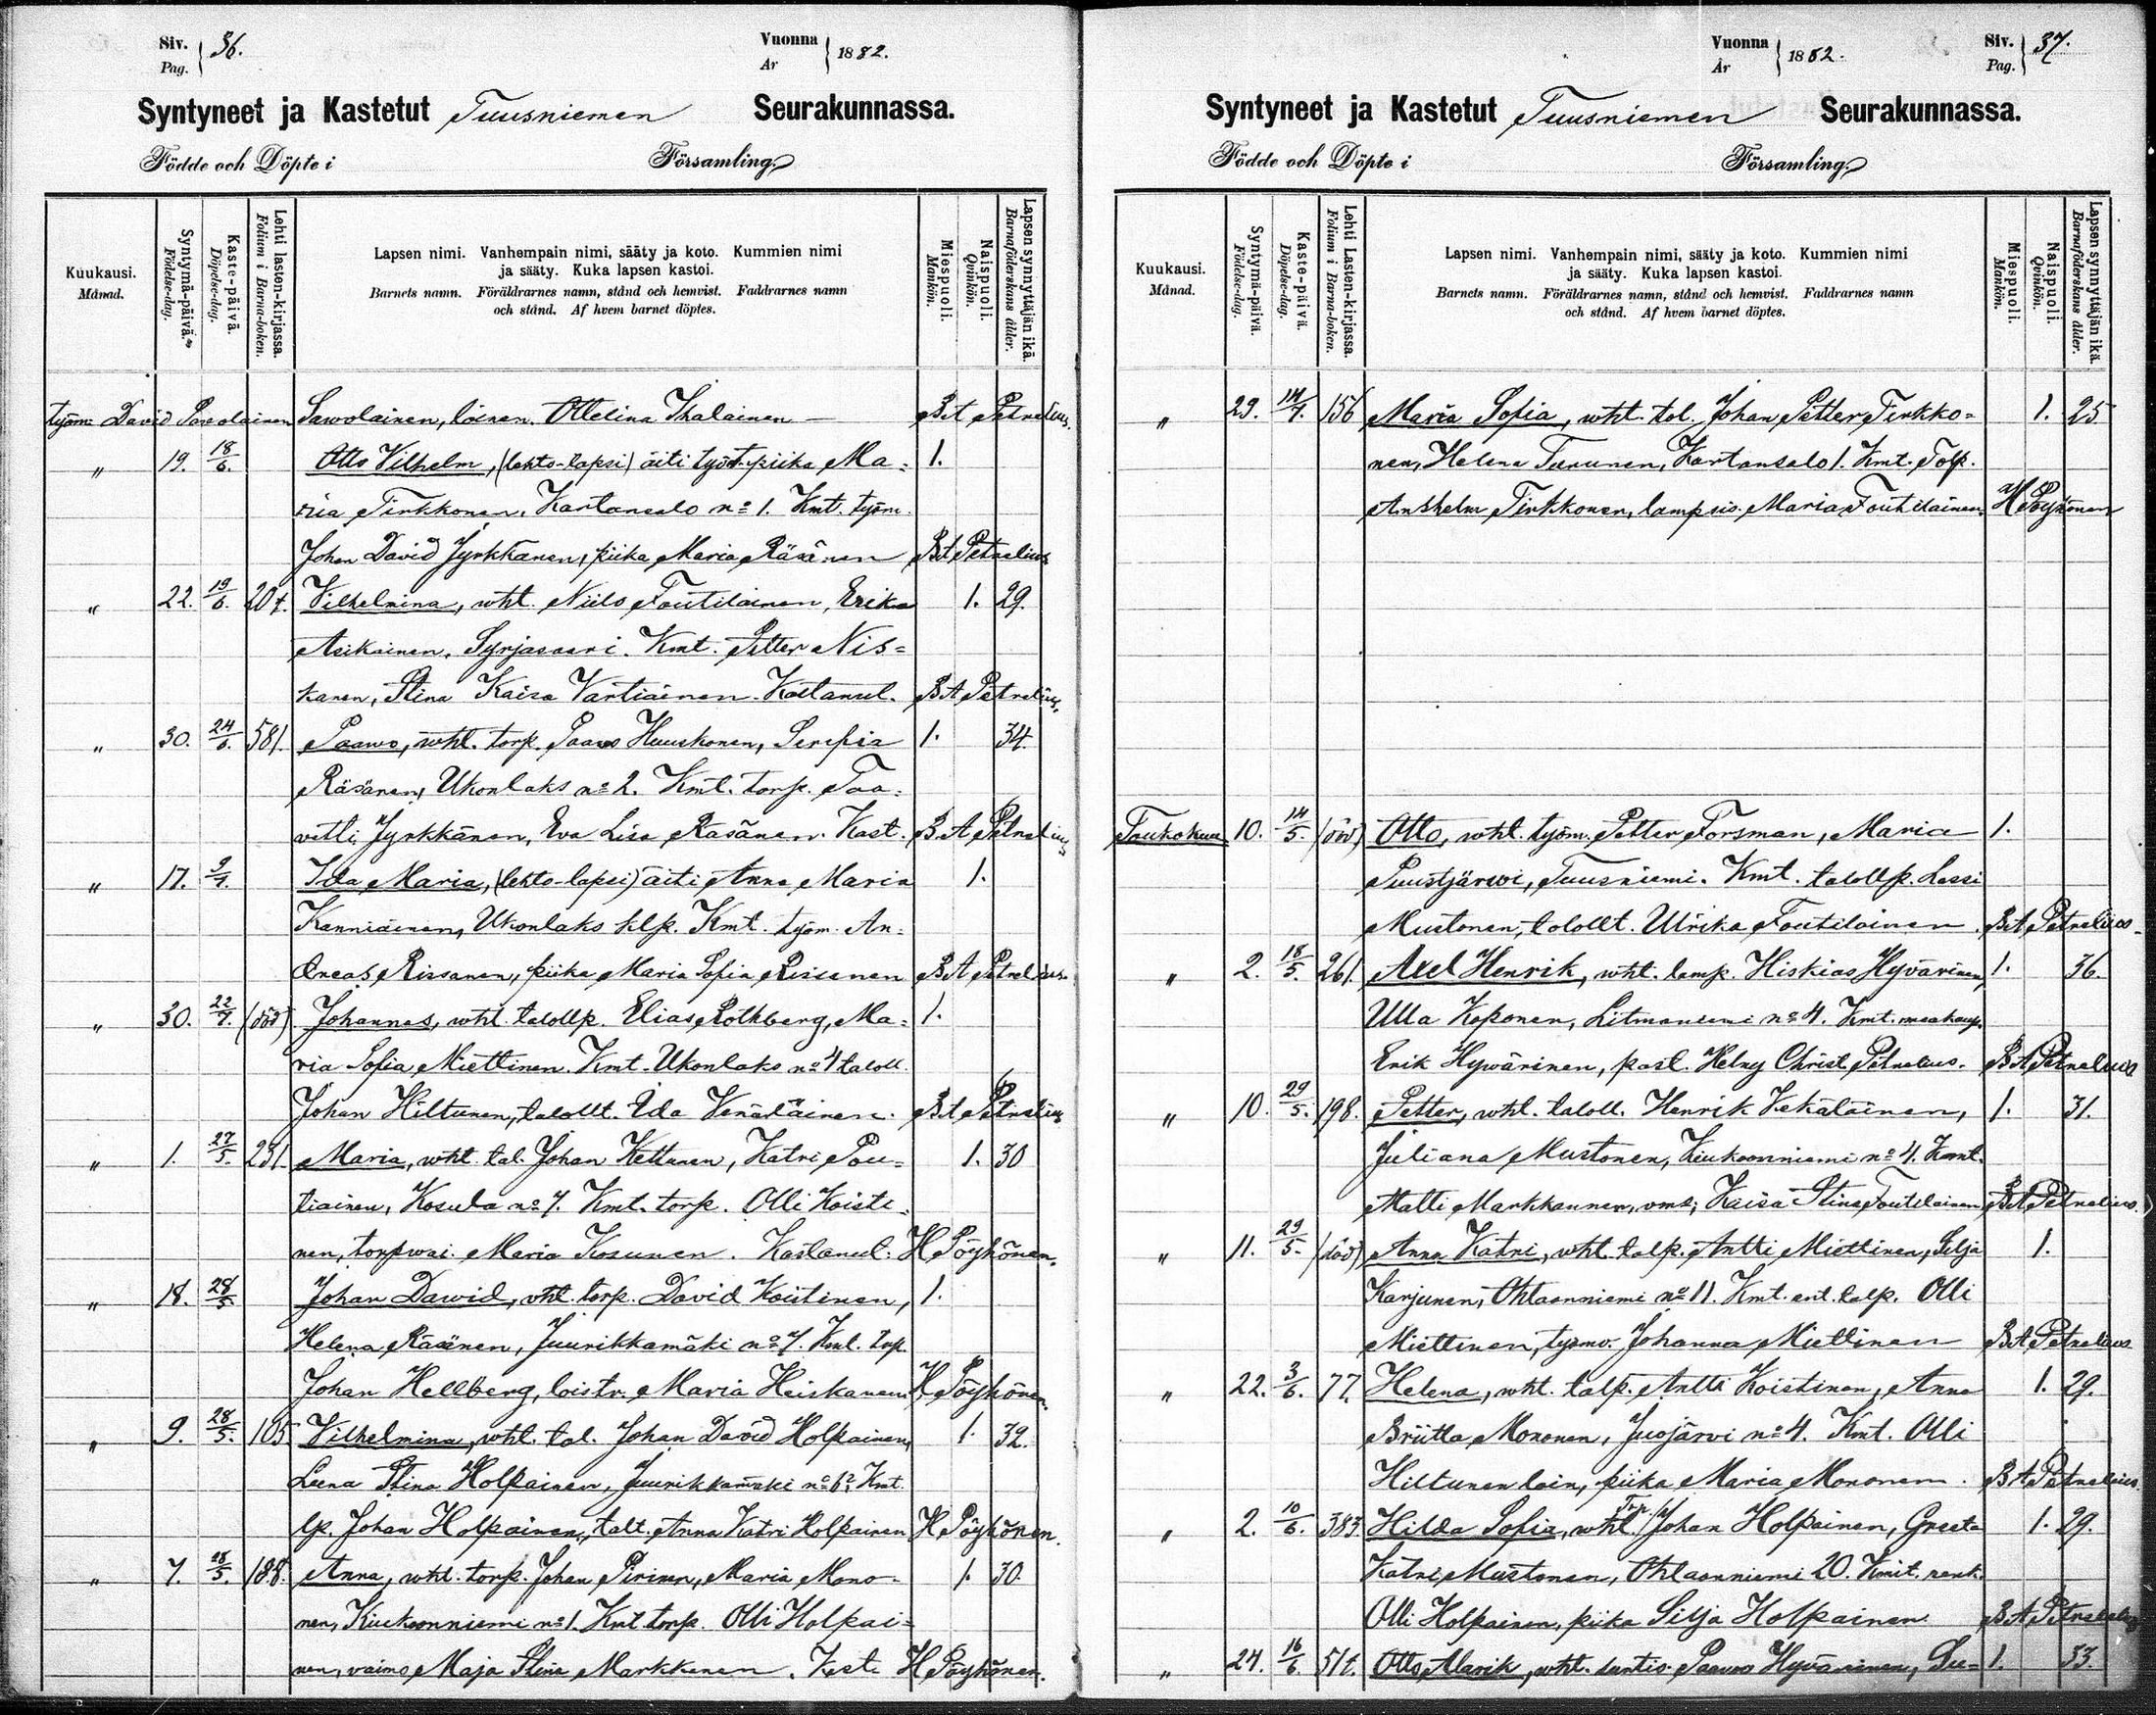 Siv. Pag. 36. Vuonna År 1882.
Syntyneet ja Kastetut Tuusniemen Seurakunnassa.
Födde och Döpte i Församling.
Kuukausi. Månad.
Syntymä-päivä. Födelse-dag.
Kaste-päivä. Döpelse-dag.
Lehti lasten-kirjassa. Folium i Barna-boken.
Lapsen nimi. Vanhempain nimi, sääty ja koto. Kummien nimi
ja sääty. Kuka lapsen kastoi.
Barnets namn. Föräldrarnes namn, stånd och hemvist. Faddrarnes namn
och stånd. Af hvem barnet döptes.
Miespuoli. Mankön.
Naispuoli. Qvinkön.
Lapsen synnyttäjän ikä. Barnaföderskans ålder.
työm. David Sawolainen Sawolainen, loinen. Ottelina Ihalainen — B. A Petrelius.
" 19. 18/6. Otto Vilhelm, (lehto-lapsi) äiti työst. piika Ma= 1.
ria Tirkkonen. Kartansalo no 1. Kmt. työm.
Johan David Jyrkkänen, piika Maria Räsänen B A Petrelius
" 22. 19/6. 207. Vilhelmina, wht. Niilo Toutilainen, Erika 1. 29.
Asikainen. Syrjasaari. Kmt. Petter Nis=
kanen, Stina Kaisa Vartiainen. Kastanut. B A Petrelius.
" 30. 24/6. 581. Paawo, wht. torp. Paavo Huuskonen, Serefia 1. 34.
Räsänen, Ukonlaks no 2. Kmt. torp. Taa=
vetti Jyrkkänen, Eva Lisa Räsänen. Kast. B. A Petrelius
" 17. 9/7. Ida Maria, (lehto-lapsi) äiti Anna Maria 1.
Kanniainen, Ukonlaks klp. Kmt. työm. An=
dreas Rissanen, piika Maria Sofia Rissanen B A Petrelius
" 30. 22/7. (död) Johannes, wht. talollp. Elias Rothberg, Ma= 1.
ria Sofia Miettinen. Kmt. Ukonlaks no 4 taloll.
Johan Hiltunen, talollt. Ida Venäläinen. B. A Petrelius
" 1. 27/5. 231. Maria, wht. tal. Johan Kettunen, Katri Pou= 1. 30
tiainen, Kosula no 7. Kmt. torp. Olli Koisti=
nen, torpwai. Maria Kosunen. Kastanut: H Pöyhönen.
" 18. 28/5 Johan Dawid, wht. torp. David Koistinen, 1.
Helena Räsänen, Juurikkamäki no 7. Kmt. trp.
Johan Hellberg, loistr. Maria Heiskanen H Pöyhönen.
" 9. 28/5. 105 Vilhelmina, wht. tal. Johan David Holpainen, 1. 32.
Leena Stina Holpainen, Juurikkamäki no 6. Kmt.
lp. Johan Holpainen, talt. Anna Katri Holpainen H Pöyhönen.
" 7. 28/5. 188. Anna, wht. torp. Johan Pirinen, Maria Mono= 1. 30
nen, Kiukoonniemi no 1. Kmt. torp. Olli Holpai=
nen, vaimo Maja Stina Markkanen. Kast. H Pöyhönen.
Vuonna År 1882. Siv. Pag. 37.
Syntyneet ja Kastetut Tuusniemen Seurakunnassa.
Födde och Döpte i Församling.
Kuukausi. Månad.
Syntymä-päivä. Födelse-dag.
Kaste-päivä. Döpelse-dag.
Lehti Lasten-kirjassa. Folium i Barna-boken.
Lapsen nimi. Vanhempain nimi, sääty ja koto. Kummien nimi
ja sääty. Kuka lapsen kastoi.
Barnets namn. Föräldrarnes namn, stånd och hemvist. Faddrarnes namn
och stånd. Af hvem barnet döptes.
Miespuoli. Mankön.
Naispuoli. Qvinkön.
Lapsen synnyttäjän ikä. Barnaföderskans ålder.
" 29. 14/7. 156 Maria Sofia, wht. tol. Johan Petter Tirkko= 1. 25
nen, Helena Turunen, Kartansalo 1. Kmt. Tolp.
Anshelm Tirkkonen, lampuo. Maria Toutilainen. H Pöyhönen
Toukokuu 10. 14/5. (död) Otto, wht. työm. Petter Forsman, Maria 1.
Puustjärwi, Tuusniemi. Kmt. talollp. Lassi
Mustonen, talollt. Ulrika Toutilainen. B A Petrelius
" 2. 18/5. 261. Axel Henrik, wht. lamp. Hiskias Hyvärinen, 1. 36.
Ulla Koponen, Litmaniemi no 4. Kmt. maakaup.
Erik Hywärinen, past. Helny Christ. Petrelius. B A Petrelius
" 10. 29/5. 198. Petter, wht. taloll. Henrik Kekäläinen, 1. 31.
Juliana Mustonen, Kiukoonniemi no 4. Kmt.
Matti Markkanen, vms; Kaisa Stina Toutilainen B A Petrelius.
" 11. 29/5. (död) Anna Katri, wht. talp. Antti Miettinen, Silja 1.
Karjunen, Ohtaanniemi no 11. Kmt. ent. talp. Olli
Miettinen, työmv. Johanna Miettinen B A Petrelius
" 22. 3/6. 77. Helena, wht. talp. Antti Koistinen, Anna 1. 29.
Briitta Mononen, Juojärvi no 4. Kmt. Olli
Hiltunen loin, piika Maria Mononen. B A Petrelius
" 2. 10/6. 383. Hilda Sofia, wht. Trp. Johan Holpainen, Greeta 1. 29.
Katri Mustonen, Ohtaanniemi 20. Kmit. renk.
Olli Holpainen, piika Silja Holpainen B A Petrelius
" 24. 16/6. 517. Otto Alarik, wht. suntio. Paavo Hyvärinen, Su= 1. 33.